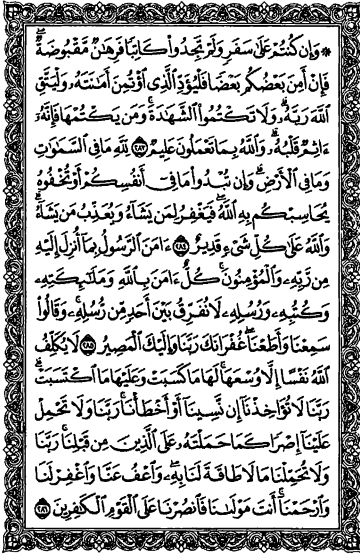 ۞ وَإِن كُنتُمْ عَلَىٰ سَفَرٍ وَلَمْ تَجِدُوا۟ كَاتِبًا فَرِهَـٰنٌ مَّقْبُوضَةٌ ۖ
فَإِنْ أَمِنَ بَعْضُكُم بَعْضًا فَلْيُؤَدِّ ٱلَّذِى ٱؤْتُمِنَ أَمَـٰنَتَهُۥ وَلْيَتَّقِ
ٱللَّهَ رَبَّهُۥ ۗ وَلَا تَكْتُمُوا۟ ٱلشَّهَـٰدَةَ ۚ وَمَن يَكْتُمْهَا فَإِنَّهُۥٓ
ءَاثِمٌ قَلْبُهُۥ ۗ وَٱللَّهُ بِمَا تَعْمَلُونَ عَلِيمٌ ﴿٢٨٣﴾ لِّلَّهِ مَا فِى ٱلسَّمَـٰوَٰتِ
وَمَا فِى ٱلْأَرْضِ ۗ وَإِن تُبْدُوا۟ مَا فِىٓ أَنفُسِكُمْ أَوْ تُخْفُوهُ
يُحَاسِبْكُم بِهِ ٱللَّهُ ۖ فَيَغْفِرُ لِمَن يَشَآءُ وَيُعَذِّبُ مَن يَشَآءُ ۗ
وَٱللَّهُ عَلَىٰ كُلِّ شَىْءٍ قَدِيرٌ ﴿٢٨٤﴾ ءَامَنَ ٱلرَّسُولُ بِمَآ أُنزِلَ إِلَيْهِ
مِن رَّبِّهِۦ وَٱلْمُؤْمِنُونَ ۚ كُلٌّ ءَامَنَ بِٱللَّهِ وَمَلَـٰٓئِكَتِهِۦ
وَكُتُبِهِۦ وَرُسُلِهِۦ لَا نُفَرِّقُ بَيْنَ أَحَدٍ مِّن رُّسُلِهِۦ ۚ وَقَالُوا۟
سَمِعْنَا وَأَطَعْنَا ۖ غُفْرَانَكَ رَبَّنَا وَإِلَيْكَ ٱلْمَصِيرُ ﴿٢٨٥﴾ لَا يُكَلِّفُ
ٱللَّهُ نَفْسًا إِلَّا وُسْعَهَا ۚ لَهَا مَا كَسَبَتْ وَعَلَيْهَا مَا ٱكْتَسَبَتْ ۗ
رَبَّنَا لَا تُؤَاخِذْنَآ إِن نَّسِينَآ أَوْ أَخْطَأْنَا ۚ رَبَّنَا وَلَا تَحْمِلْ
عَلَيْنَآ إِصْرًا كَمَا حَمَلْتَهُۥ عَلَى ٱلَّذِينَ مِن قَبْلِنَا ۚ رَبَّنَا
وَلَا تُحَمِّلْنَا مَا لَا طَاقَةَ لَنَا بِهِۦ ۖ وَٱعْفُ عَنَّا وَٱغْفِرْ لَنَا
وَٱرْحَمْنَآ ۚ أَنتَ مَوْلَىٰنَا فَٱنصُرْنَا عَلَى ٱلْقَوْمِ ٱلْكَـٰفِرِينَ ﴿٢٨٦﴾